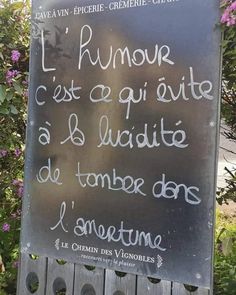 CAVE À VIN - ÉPICERIE - CRÈMERIE -
L'humour
c'est ce qui évite
à la lucidité
de tomber dans
l'amertume
LE CHEMIN DES VIGNOBLES
...raccourci vers le plaisir